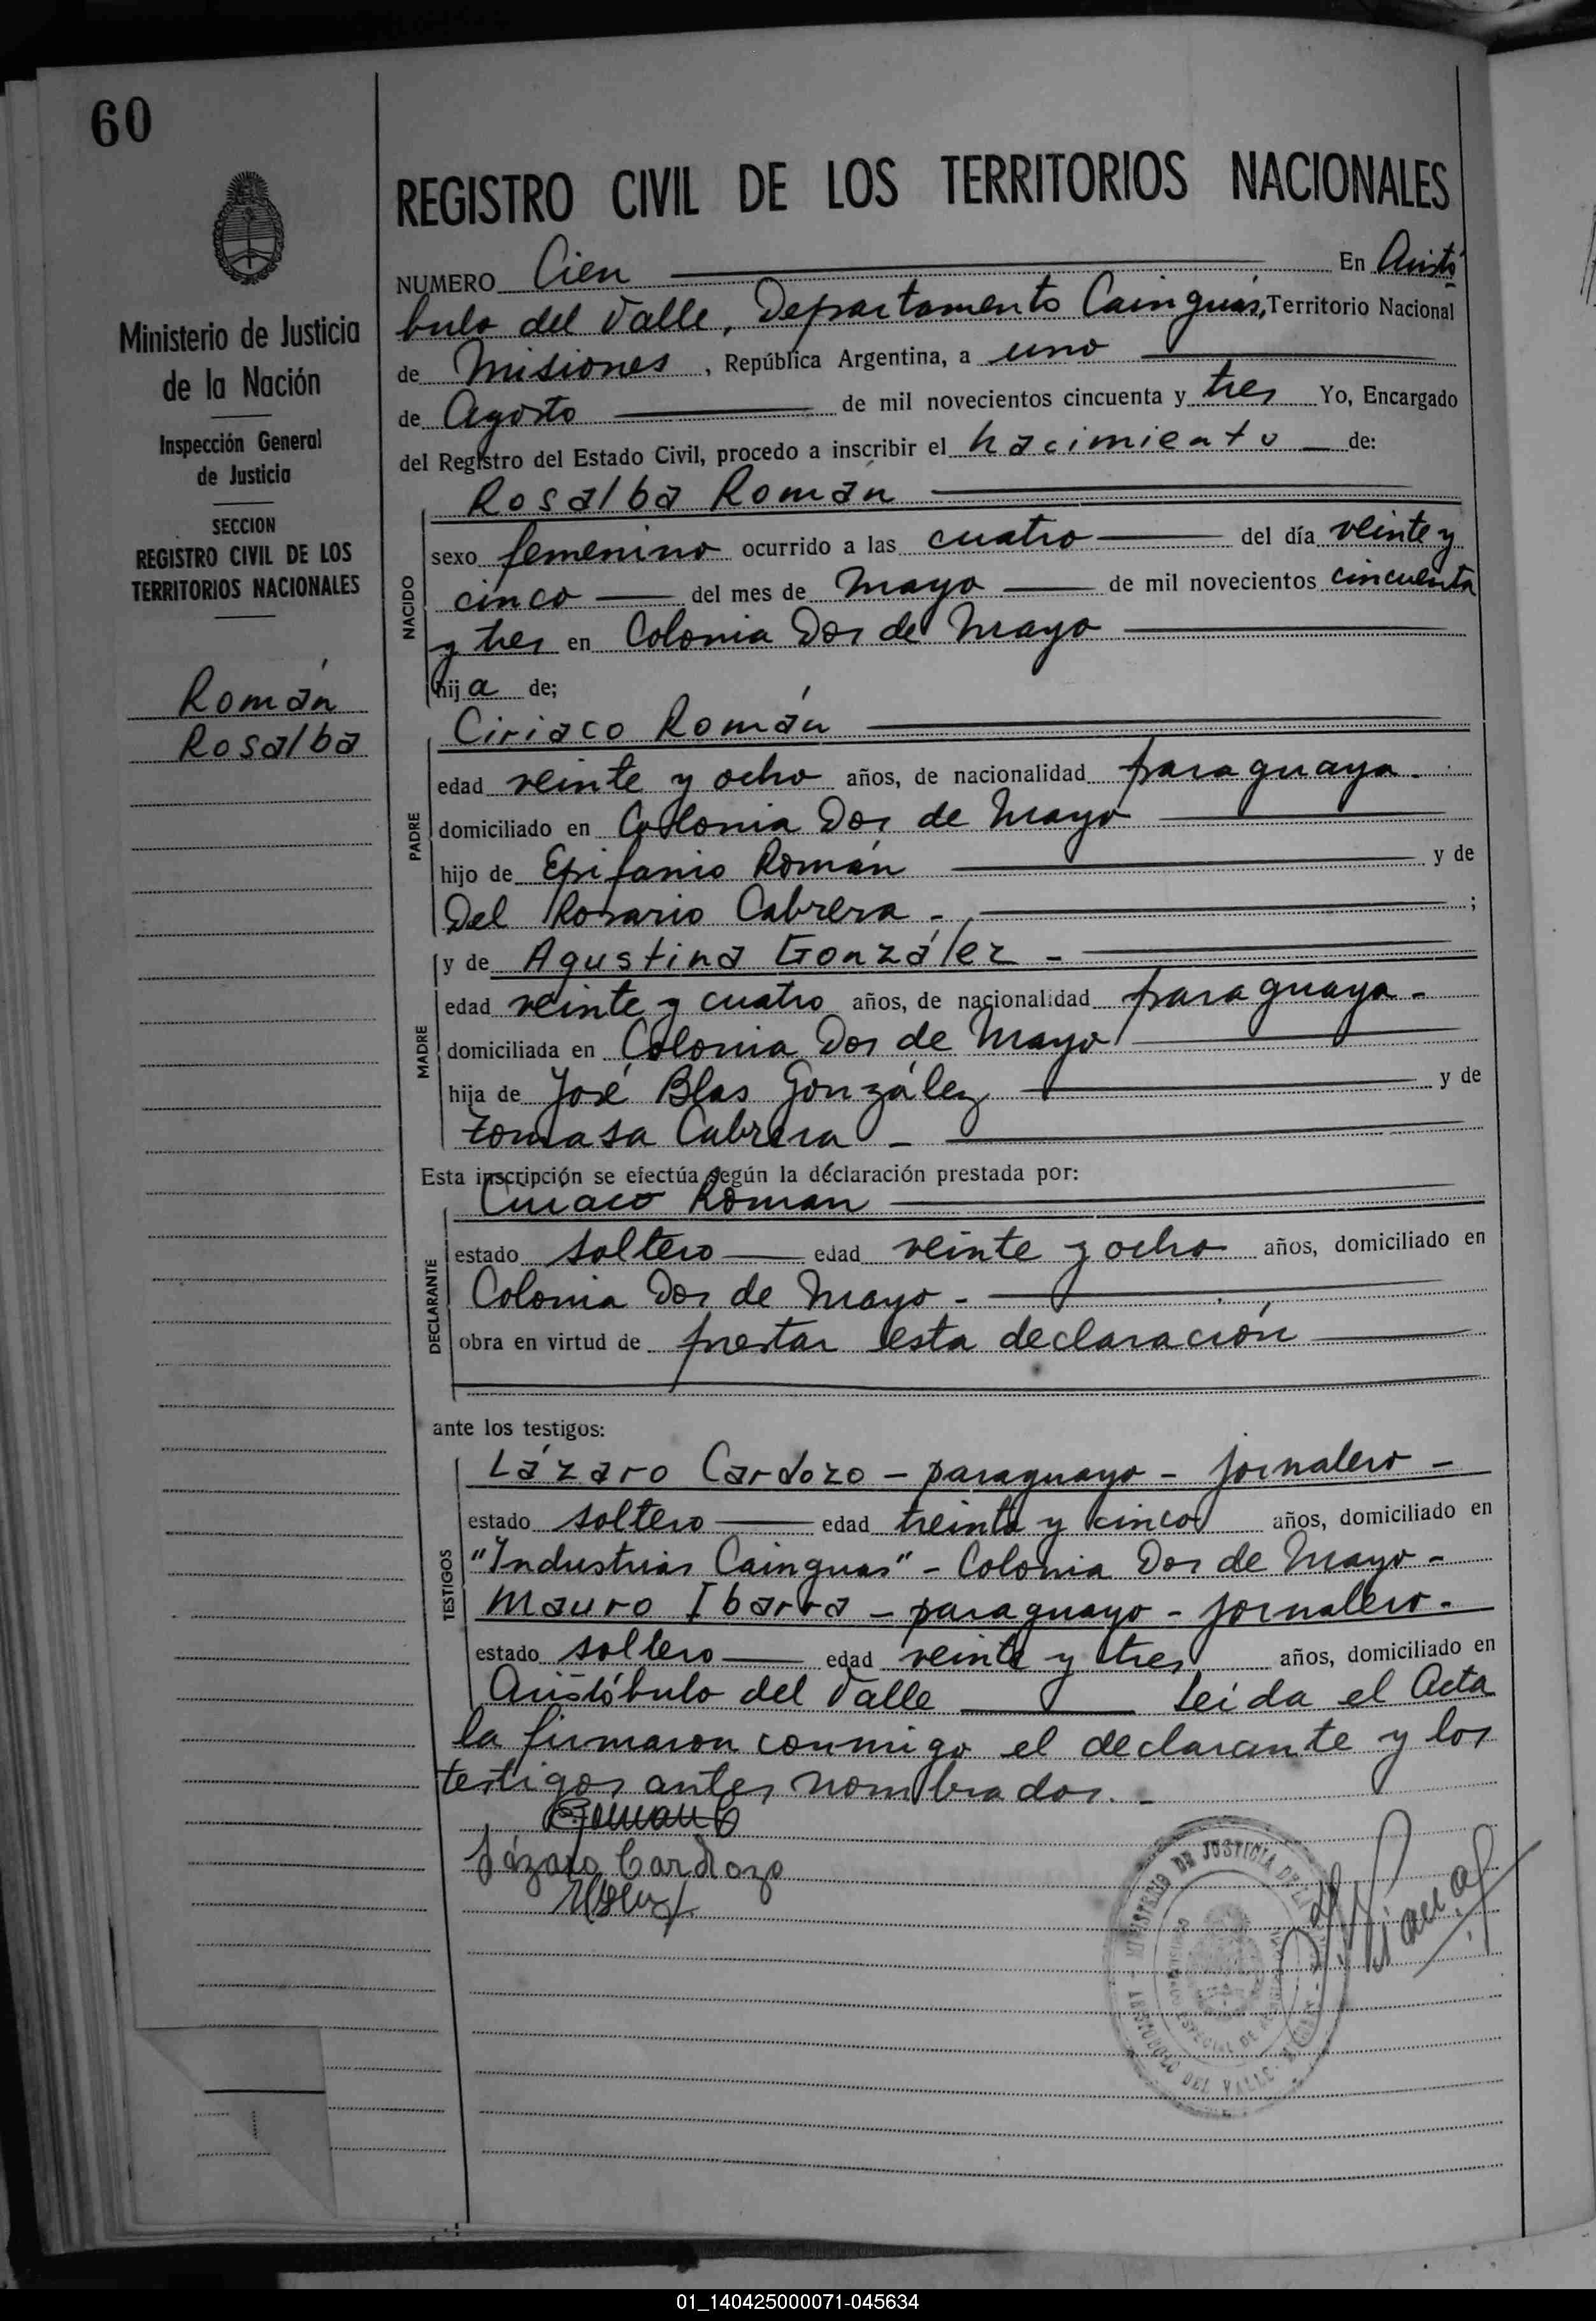 60
Ministerio de Justicia
de la Nación
Inspección General
de Justicia
SECCION
REGISTRO CIVIL DE LOS
TERRITORIOS NACIONALES
Román
Rosalba
REGISTRO CIVIL DE LOS TERRITORIOS NACIONALES
NUMERO Cien En Aristó
bulo del Valle, Departamento Cainguás, Territorio Nacional
de Misiones, República Argentina, a uno
de Agosto de mil novecientos cincuenta y tres Yo, Encargado
del Registro del Estado Civil, procedo a inscribir el nacimiento de:
NACIDO
Rosalba Román
sexo femenino ocurrido a las cuatro del día veinte y
cinco del mes de Mayo de mil novecientos cincuenta
y tres en Colonia Dos de Mayo
hija de;
PADRE
Ciriaco Román
edad veinte y ocho años, de nacionalidad paraguaya.
domiciliado en Colonia Dos de Mayo
hijo de Epifanio Román y de
Del Rosario Cabrera - ;
MADRE
y de Agustina González -
edad veinte y cuatro años, de nacionalidad paraguaya -
domiciliada en Colonia Dos de Mayo
hija de José Blas González y de
Tomasa Cabrera -
Esta inscripción se efectúa según la declaración prestada por:
DECLARANTE
Ciriaco Román
estado soltero edad veinte y ocho años, domiciliado en
Colonia Dos de Mayo -
obra en virtud de prestar esta declaración
ante los testigos:
TESTIGOS
Lázaro Cardozo - paraguayo - jornalero -
estado soltero edad treinta y cinco años, domiciliado en
"Industrias Cainguas" - Colonia Dos de Mayo -
Mauro Ibarra - paraguayo - jornalero -
estado soltero edad veinte y tres años, domiciliado en
Aristóbulo del Valle Leida el Acta
la firmaron conmigo el declarante y los
testigos antes nombrados. -
Lázaro Cardozo
MINISTERIO DE JUSTICIA DE LA
ARISTOBULO DEL VALLE
01_140425000071-045634